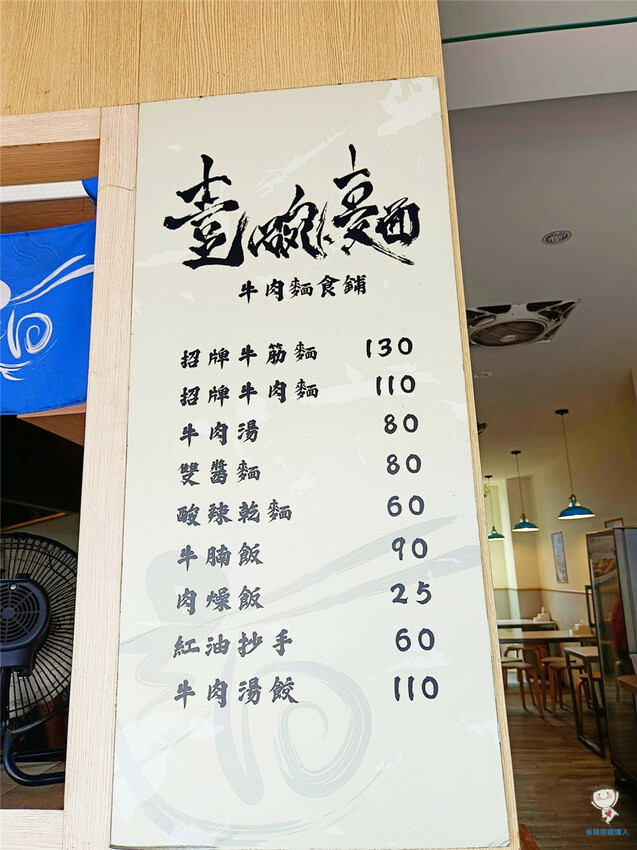 壹碗麵
牛肉麵食鋪
招牌牛筋麵 130
招牌牛肉麵 110
牛肉湯 80
雙醬麵 80
酸辣乾麵 60
牛腩飯 90
肉燥飯 25
紅油抄手 60
牛肉湯餃 110
省錢旅遊達人